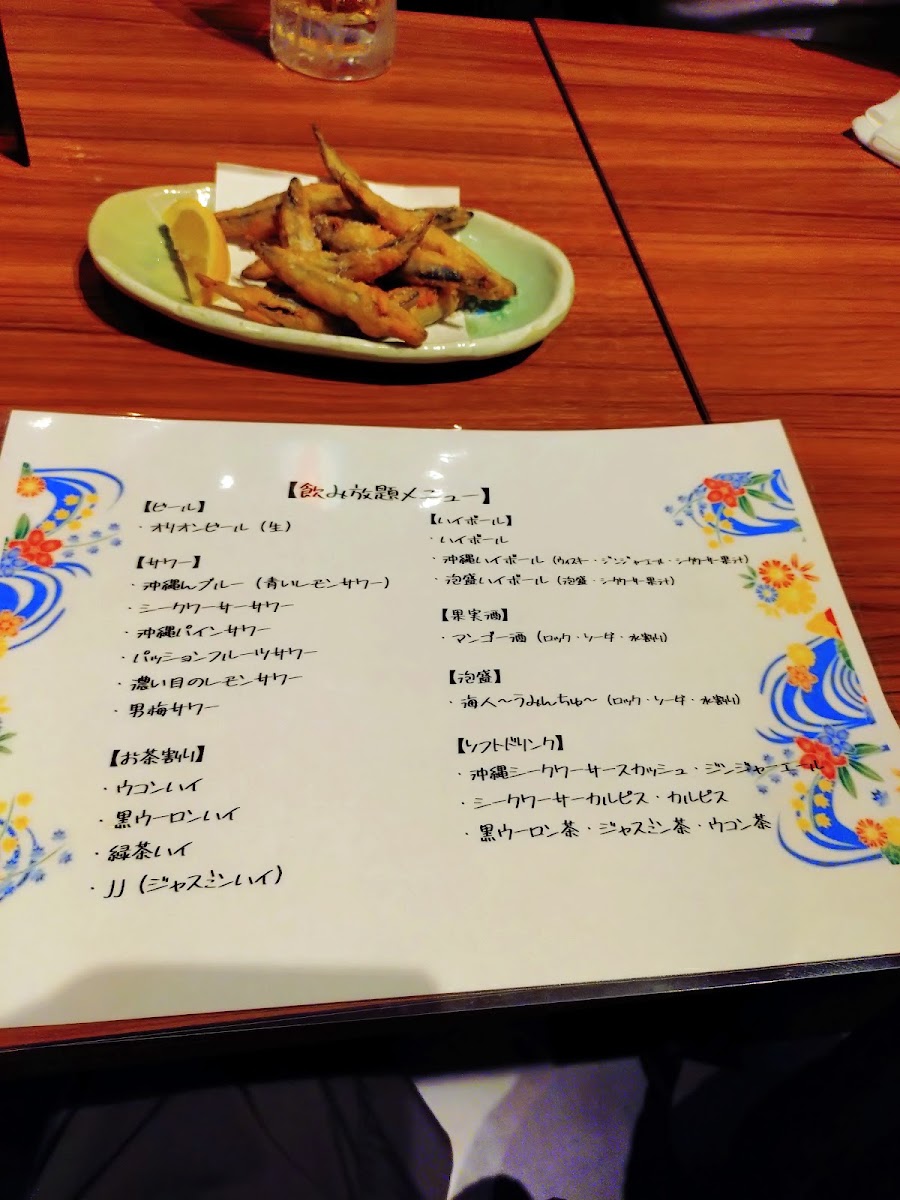 【飲み放題メニュー】
【ビール】
・オリオンビール（生）
【サワー】
・沖縄んブルー（青いレモンサワー）
・シークワーサーサワー
・沖縄パインサワー
・パッションフルーツサワー
・濃い目のレモンサワー
・男梅サワー
【お茶割り】
・ウコンハイ
・黒ウーロンハイ
・緑茶ハイ
・JJ（ジャスミンハイ）
【ハイボール】
・ハイボール
・沖縄ハイボール（ウィスキー・ジンジャエール・シークワーサー果汁）
・泡盛ハイボール（泡盛・シークワーサー果汁）
【果実酒】
・マンゴー酒（ロック・ソーダ・水割り）
【泡盛】
・海人～うみんちゅ～（ロック・ソーダ・水割り）
【ソフトドリンク】
・沖縄シークワーサースカッシュ・ジンジャーエール
・シークワーサーカルピス・カルピス
・黒ウーロン茶・ジャスミン茶・ウコン茶